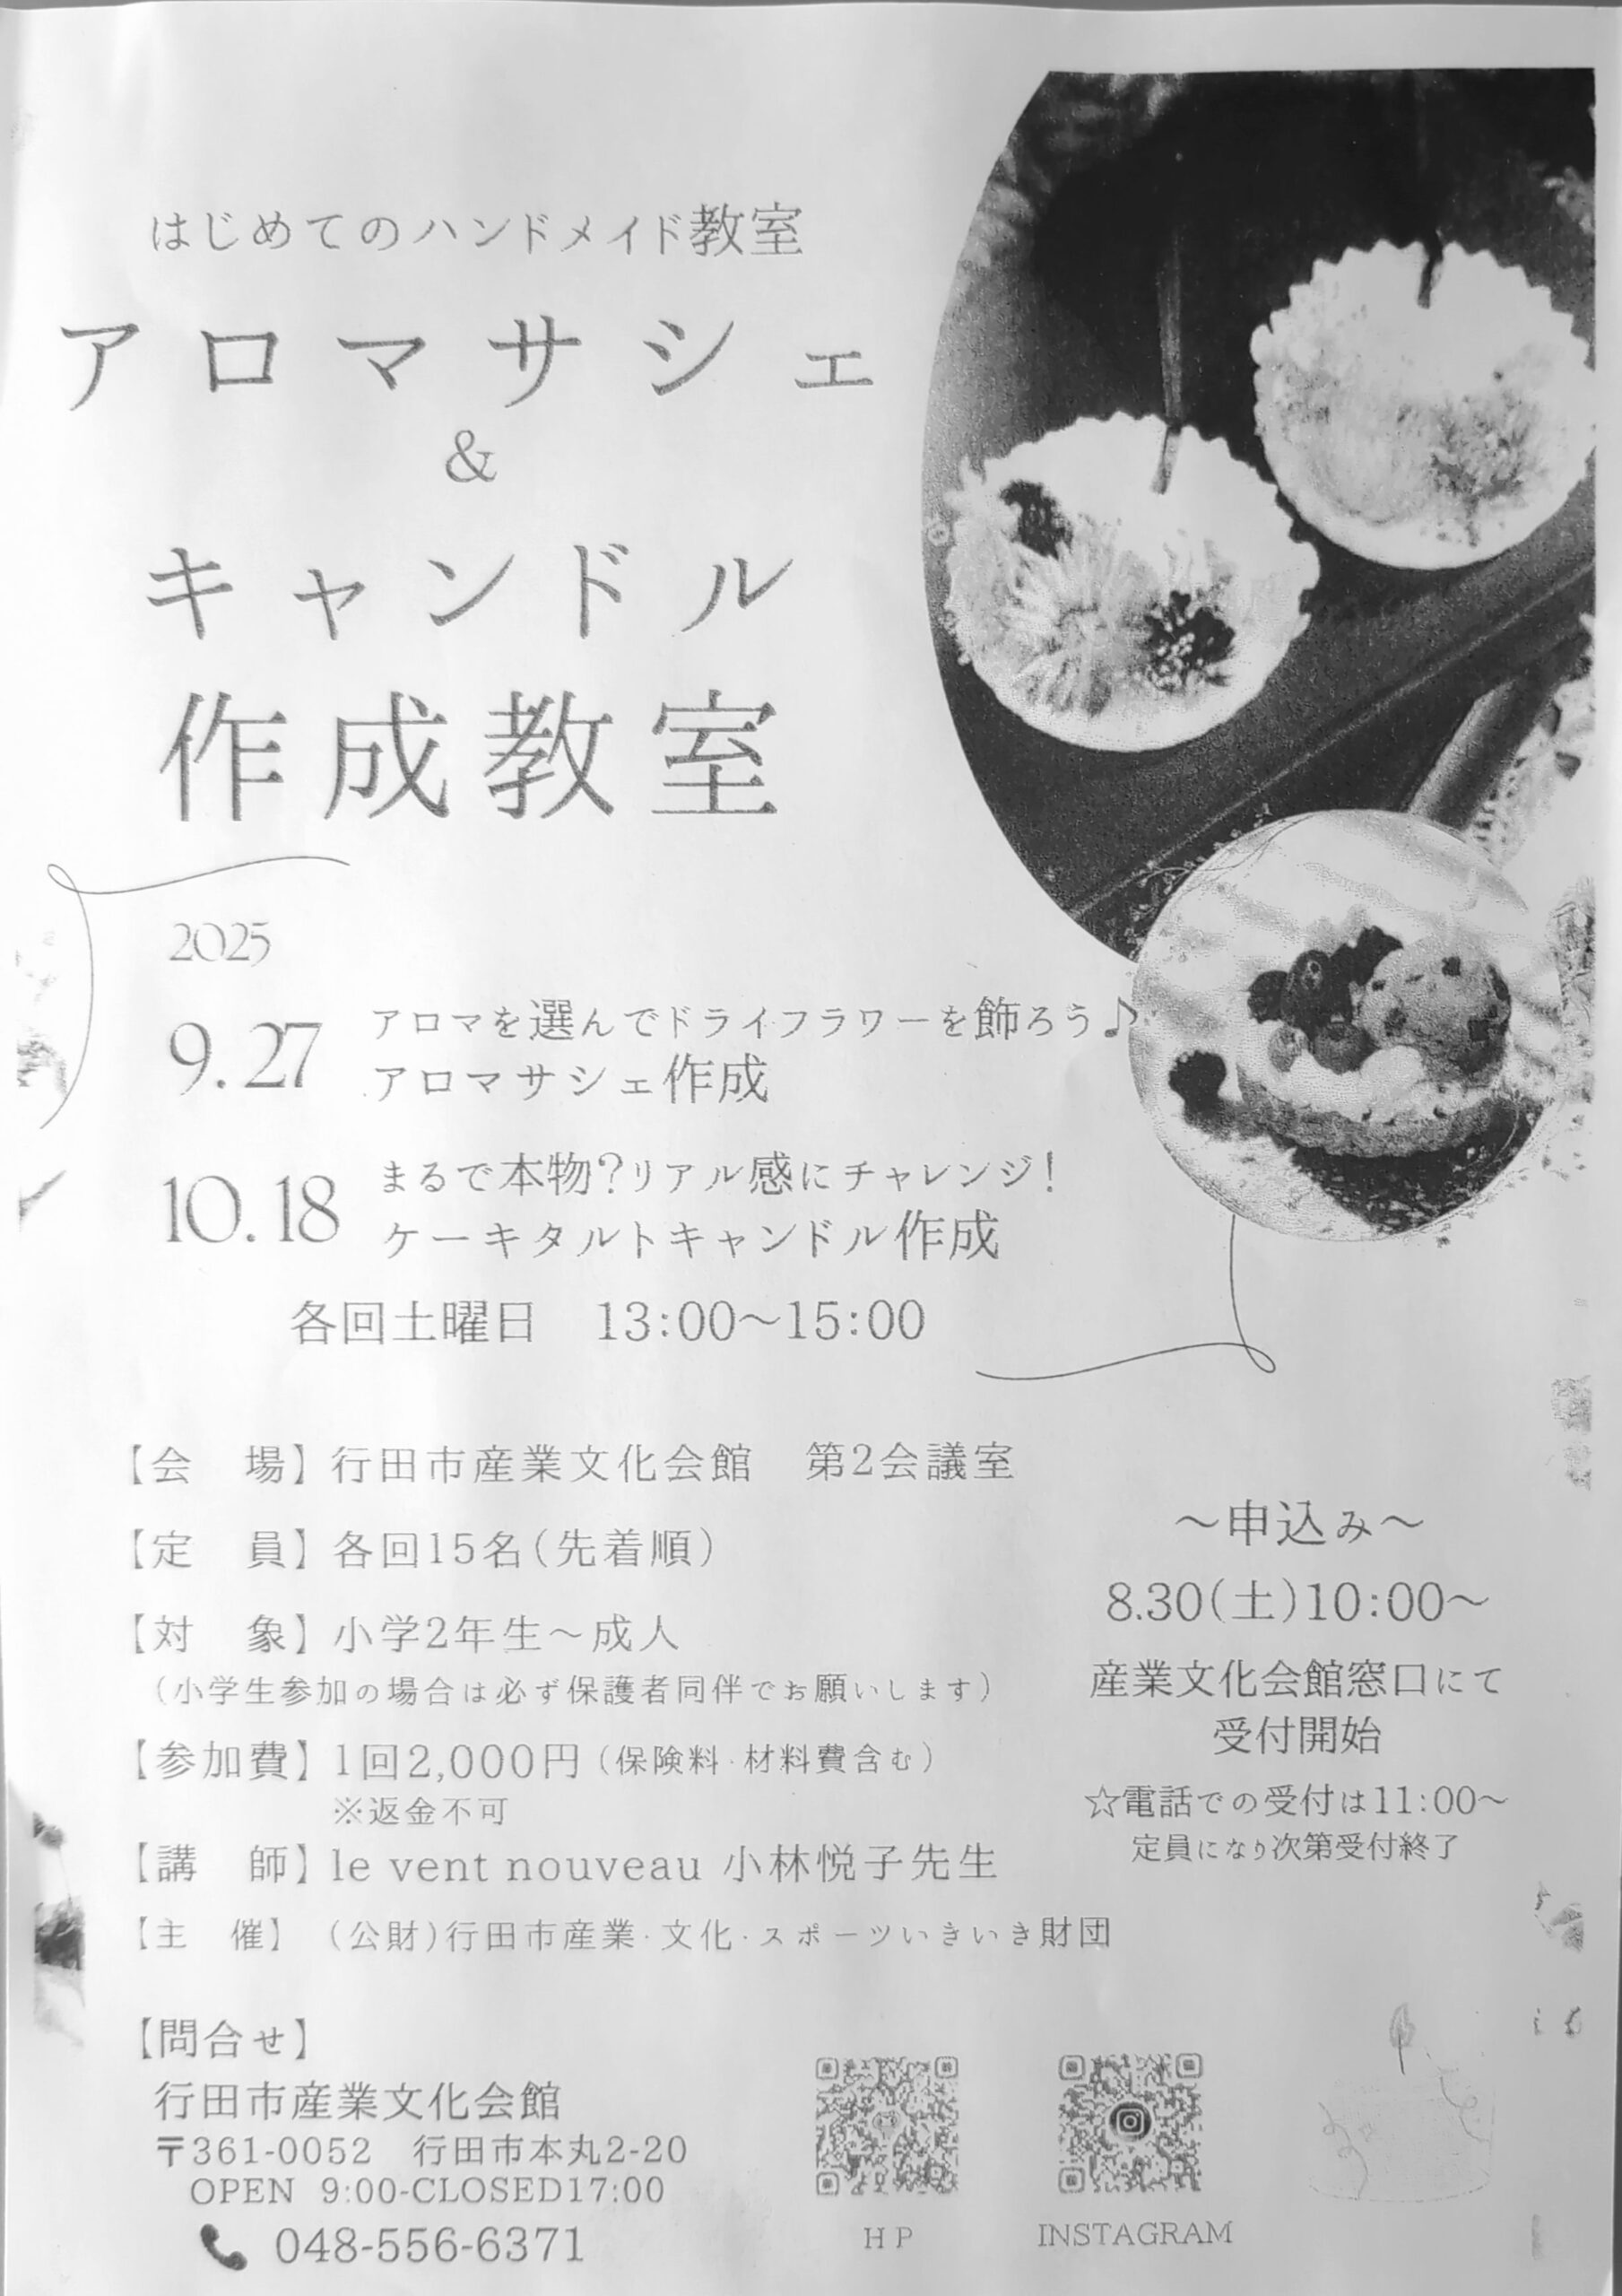 はじめてのハンドメイド教室
アロマサシェ
&
キャンドル
作成教室
2025
9.27
アロマを選んでドライフラワーを飾ろう♪
アロマサシェ作成
10.18
まるで本物?リアル感にチャレンジ!
ケーキタルトキャンドル作成
各回土曜日 13:00〜15:00
【会 場】行田市産業文化会館 第2会議室
【定 員】各回15名(先着順)
【対 象】小学2年生〜成人
(小学生参加の場合は必ず保護者同伴でお願いします)
【参加費】1回2,000円(保険料・材料費含む)
※返金不可
【講 師】le vent nouveau 小林悦子先生
【主 催】(公財)行田市産業・文化・スポーツいきいき財団
〜申込み〜
8.30(土)10:00〜
産業文化会館窓口にて
受付開始
☆電話での受付は11:00〜
定員になり次第受付終了
【問合せ】
行田市産業文化会館
〒361-0052 行田市本丸2-20
OPEN 9:00-CLOSED17:00
048-556-6371
HP
INSTAGRAM